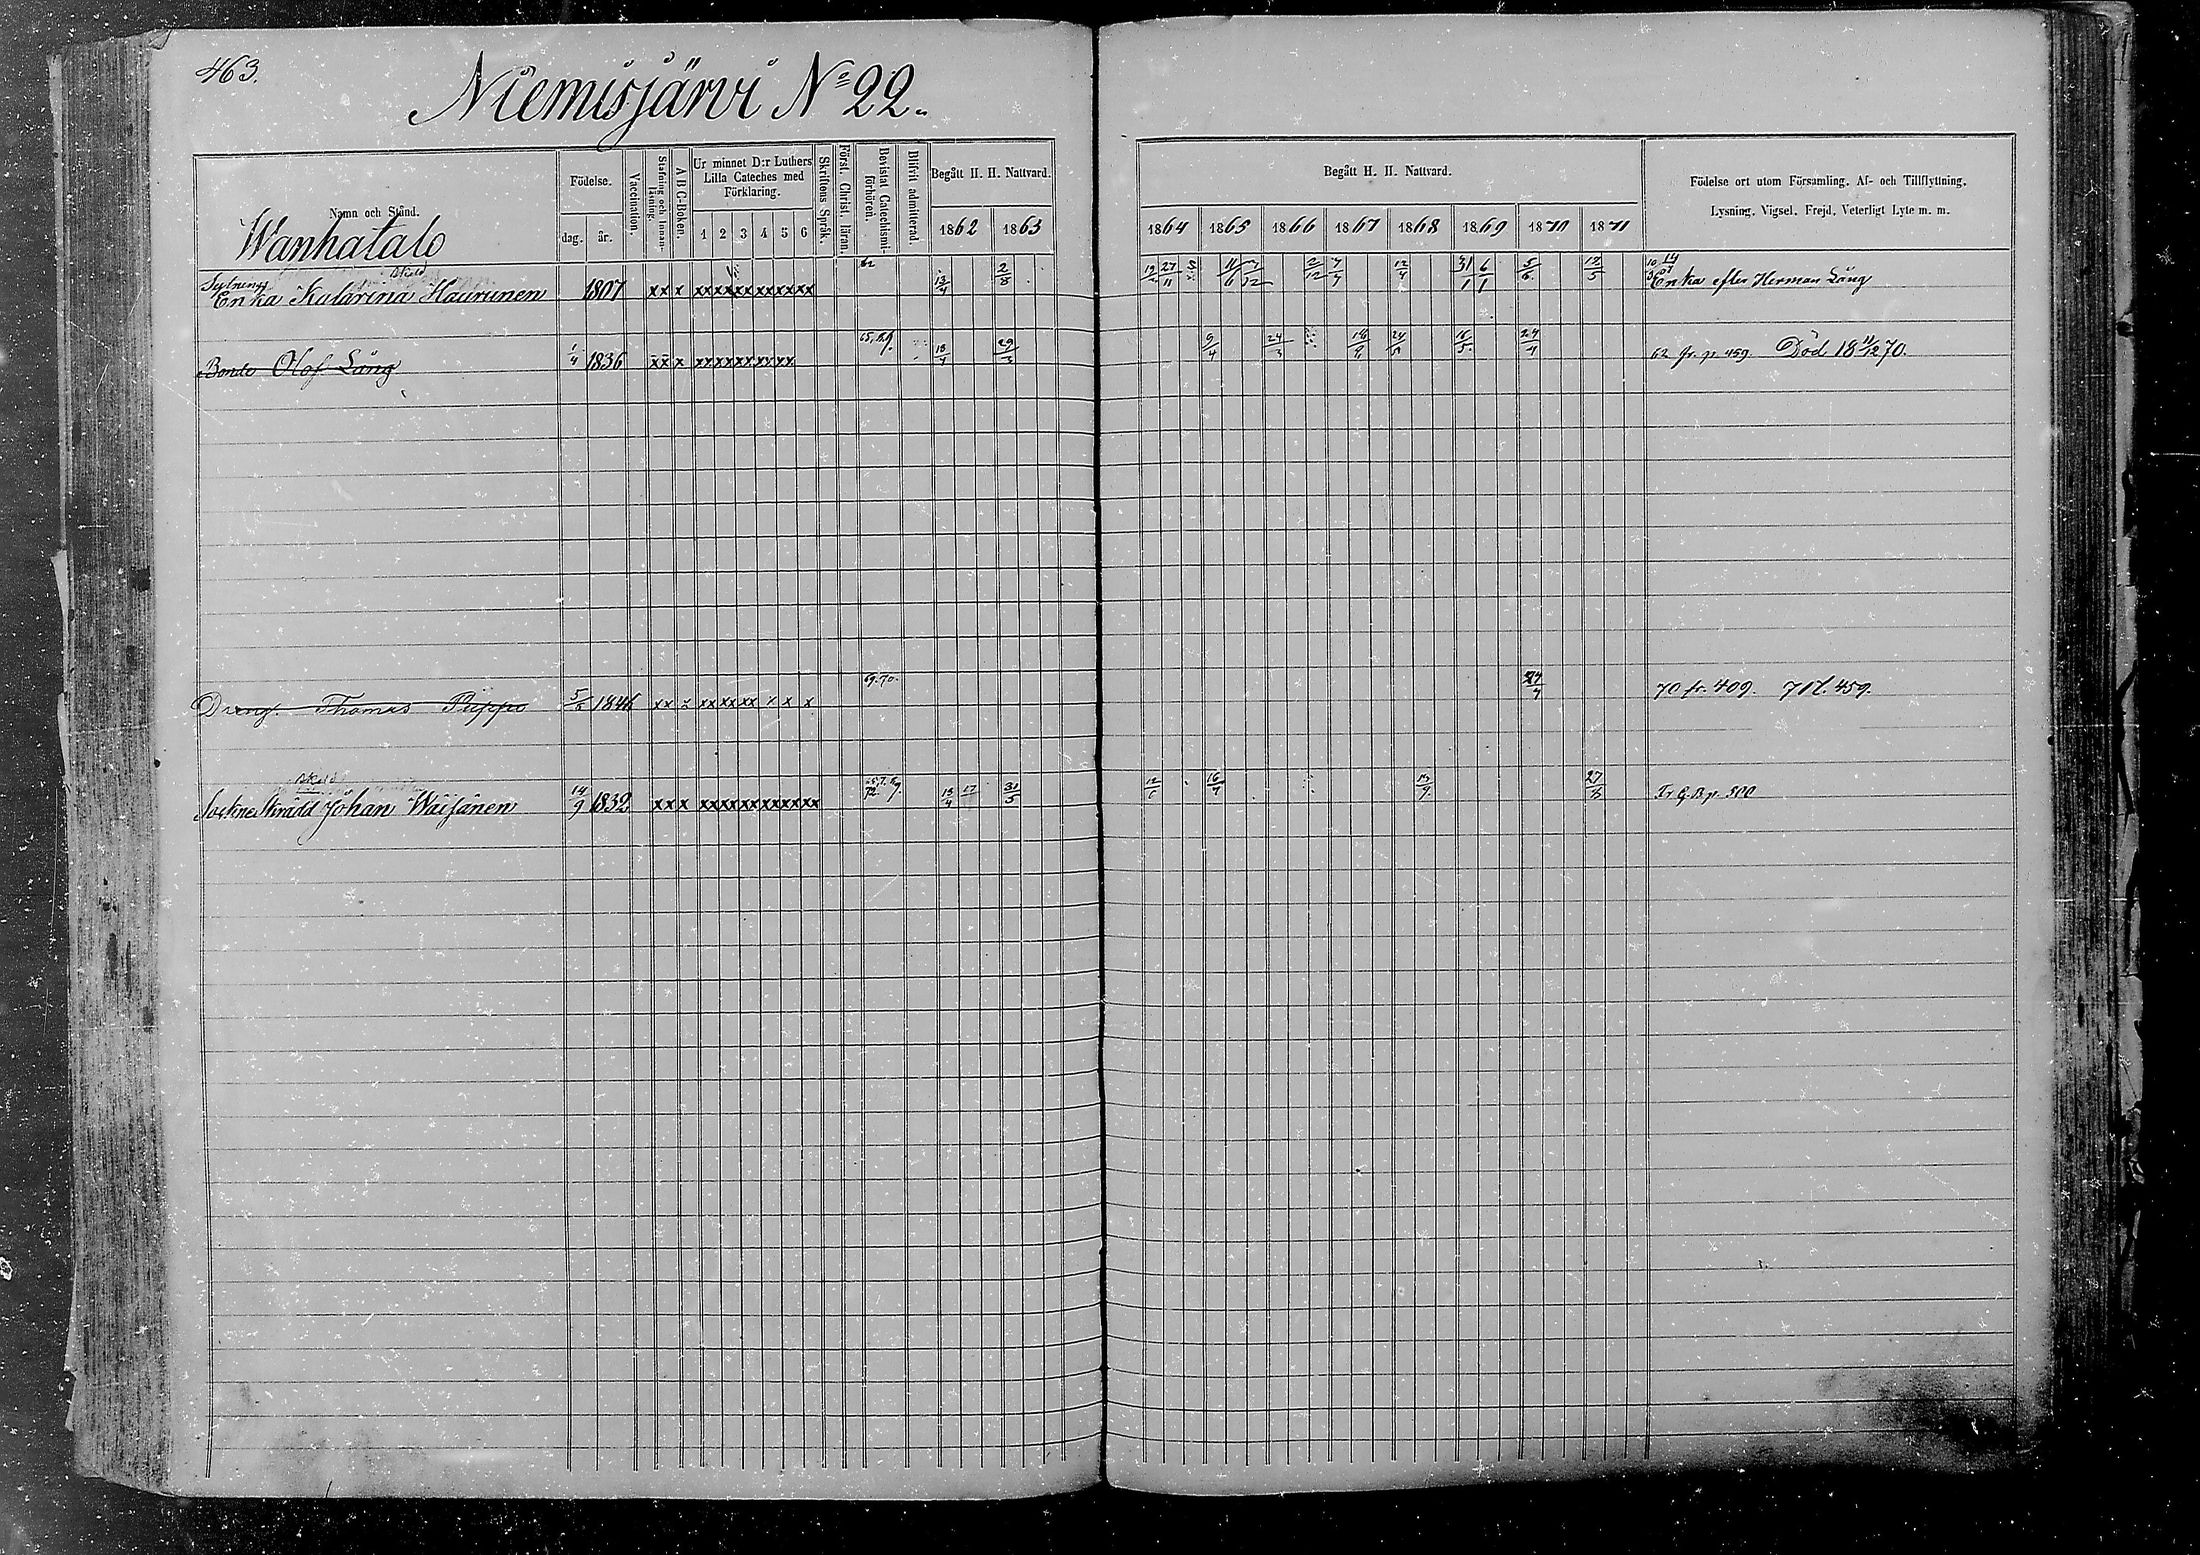 463.
Niemisjärvi No 22.
Namn och Stånd.
Wanhatalo
Födelse.
dag. år.
Vaccination.
Stafning och Innanläsning.
A B C-Boken.
Ur minnet D:r Luthers Lilla Cateches med Förklaring.
1 2 3 4 5 6
Skriftens Språk.
Först. Christ. läran.
Bevistat Catechismi-förhören.
Blifvit admitterad.
Begått H. H. Nattvard.
1862 1863
Begått H. H. Nattvard.
1864 1865 1866 1867 1868 1869 1870 1871
Födelse ort utom Församling. Af- och Tillflyttning,
Lysning. Vigsel. Frejd, Veterligt Lyte m. m.
Sytning
Enka Katarina Haurunen 1807 xxx xxxxxxxxxxxx 62 13/4 2/8 27/11 2/12 7/4 12/4 31/1 6/1 5/6 12/5 Enka efter Herman Lång
Bonde Olof Lång 1/4 1836 xx x xxxxxxxxxx 18/4 29/3 9/4 24/3 16/5 24/4 62 fr. p. 459. Död 18 11/12 70.
Dreng. Thomas Pieppo 1846 xx x xxxxxx x x x 69.70. 24/4 70 fr. 409. 71 t. 459.
Sockne Skrädd Johan Wäisänen 14/9 1832 xxx xxxxxxxxxxxx 72 13/4 17 31/5 16/4 27/3 Fr G. B p. 500